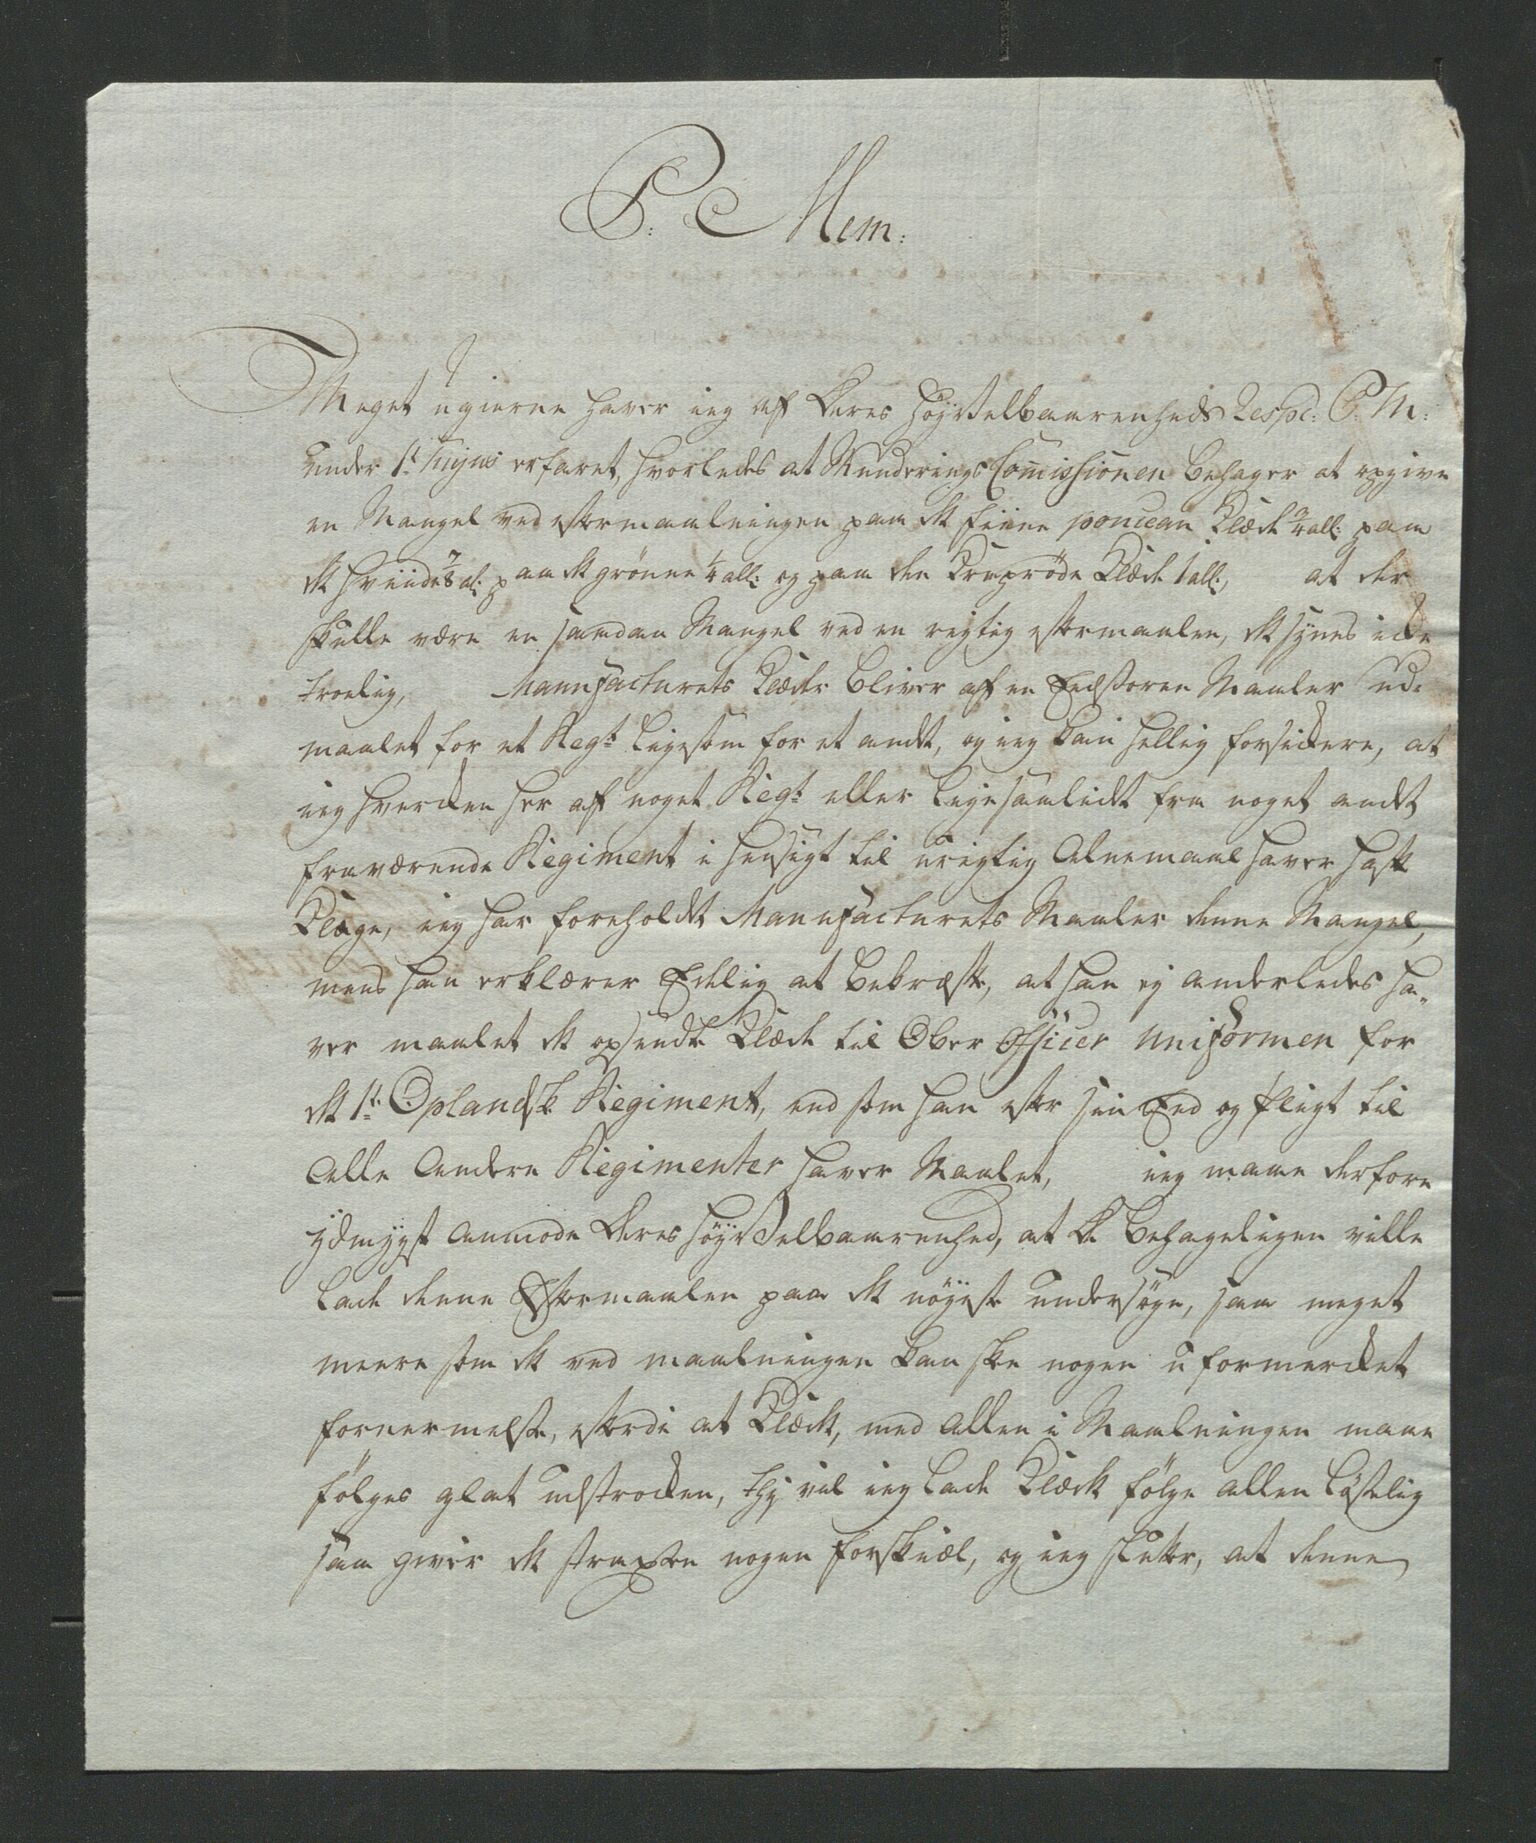 P: Mem:
Meget ugierne haver ieg af Deres Høyvelbaarenheds Resp: P. M:
under 1t hujus erfaret, hvorledes at Munderings Comissionen behager at opgive
en Mangel ved eftermaalningen paa det fiine poncean Klæde all: paa
det hviide 7/8 al: paa det grønne 1/4 all: og paa den Kraprøde Klæde 1 all:, at der
skulle være en saadan Mangel ved en rigtig eftermaalen, det synes icke
troelig, Manufacturets Klæder bliver af en Eedsvoren Maaler ud-
maalet for et Regt ligesom for et andt, og ieg kan hellig forsickere, at
ieg hverken her af noget Regt eller ligesaalidt fra noget andet
fraværende Regiment i hensigt til urigtig Alnemaal haver haft
Klage, ieg har foreholdt Manufacturets Maaler denne Mangel,
mens han erklærer Edelig at bekræfte, at han ej anderledes ha-
ver maalet det opsendte Klæde til Ober Officer Uniformen for
det 1te Oplandske Regiment, end som han efter sin Eed og Pligt til
alle andre Regimenter haver Maalet, ieg maae derfore
ydmygst anmode Deres Høyvelbaarenhed, at De behageligen ville
lade denne Eftermaalen paa det nøyeste undersøge, saa meget
meere som det ved maalningen kan ske nogen uformerket
fornermelse, efterdi at Klædet, med Allen i Maalningen maae
følges glat udstrocken, thj vil ieg lade Klædet følge allen løselig
saa giver det straxen nogen forskiæl, og ieg slutter, at denne